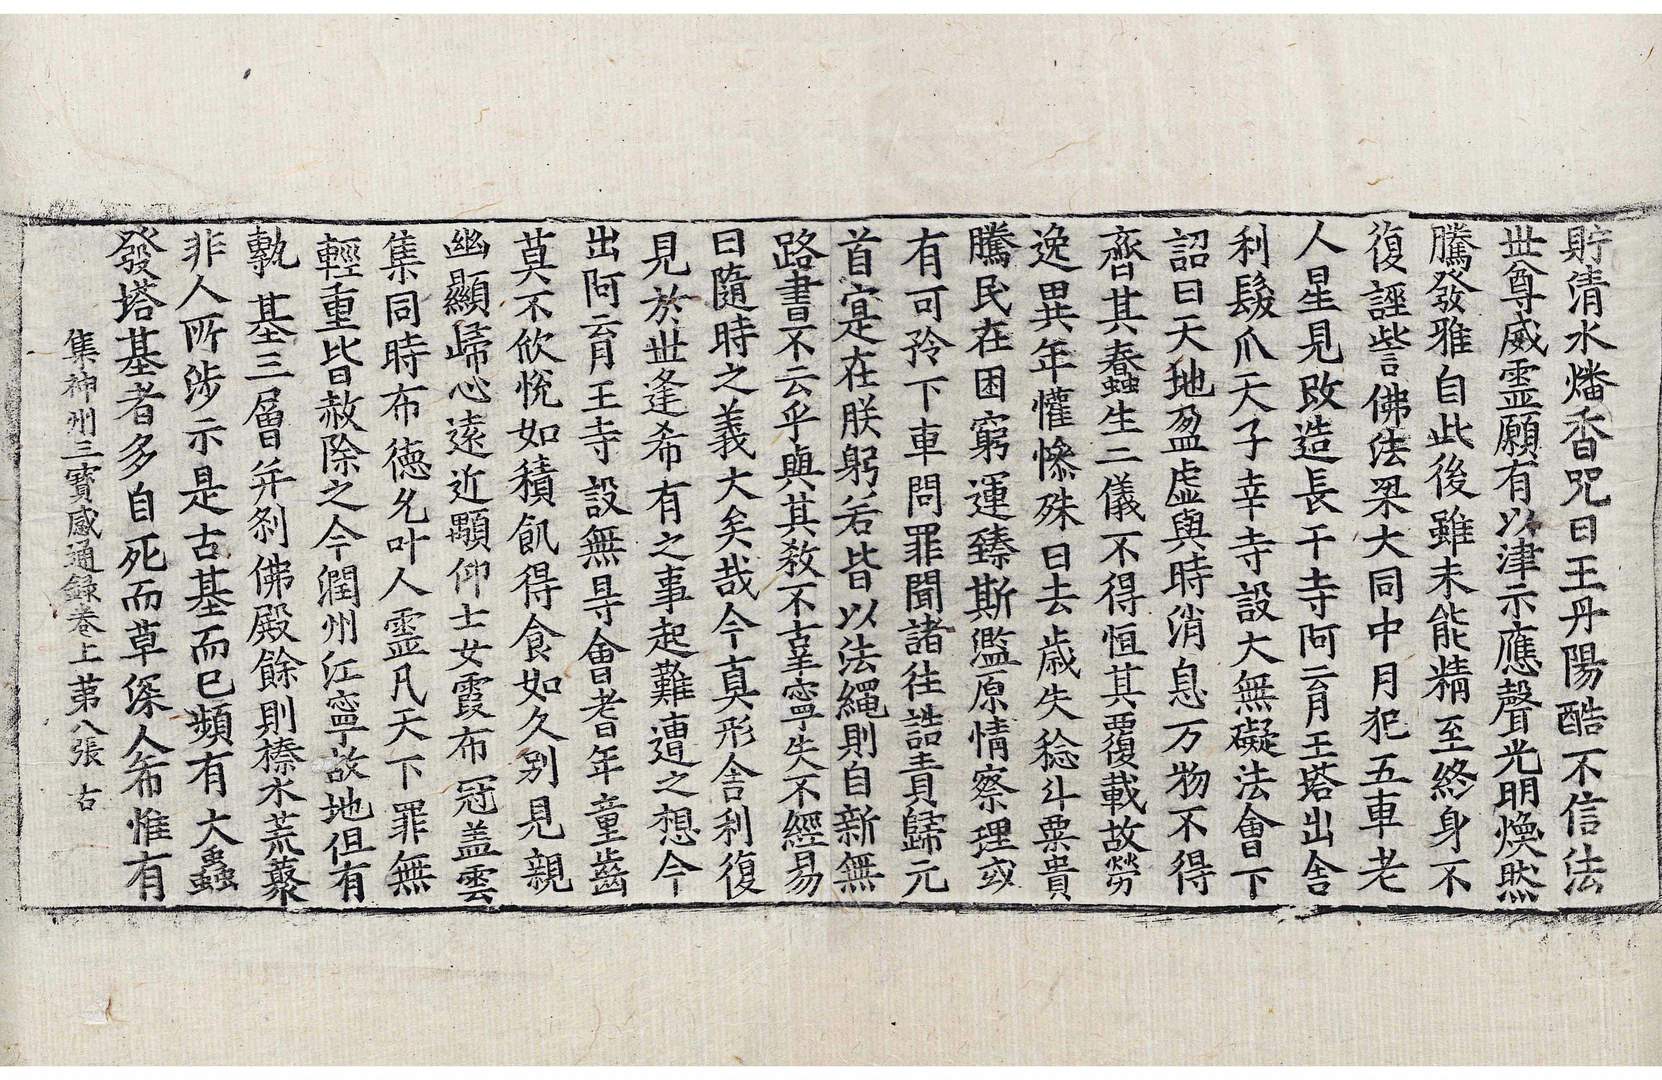 貯淸水燔香呪曰王丹陽酷不信法
世尊威靈願有以津示應聲光明煥然
騰發雅自此後雖未能精至終身不
復誣訾佛法梁大同中月犯五車老
人星見改造長干寺阿育王塔出舍
利髮爪天子幸寺設大無礙法會下
詔曰天地盈虛與時消息万物不得
齊其蠢生二儀不得恒其覆載故勞
逸異年懽慘殊日去歲失稔斗粟貴
騰民在困窮運臻斯濫原情察理或
有可矜下車問罪聞諸往誥責歸元
首寔在朕躬若皆以法繩則自新無
路書不云乎與其殺不辜寧失不經易
曰隨時之義大矣哉今真形舍利復
見於世逢希有之事起難遭之想今
出阿育王寺設無㝵會耆年童齒
莫不欣悅如積飢得食如久別見親
幽顯歸心遠近顒仰士女霞布冠盖雲
集同時布德允叶人靈凡天下罪無
輕重皆赦除之今潤州江寧故地但有
塼基三層并刹佛殿餘則榛木荒藂
非人所涉示是古基而已頻有大蟲
發塔基者多自死而草深人希惟有
集神州三寶感通錄卷上 第八張 古